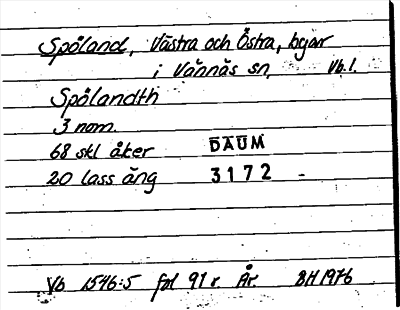 Spöland, Västra och Östra, byar
i Vännäs sn, Vb.l.
Spölandth
3 nom.
68 skl åker DAUM
20 lass äng 3172
Vb 1546:5 fol 91 r. År. BH 1976